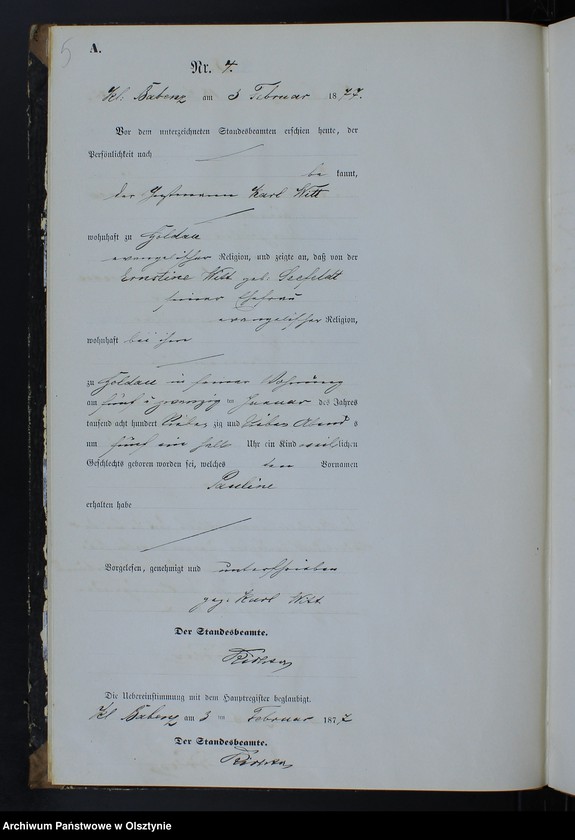 5
A.
Nr. 4.
Kl. Babenz am 3 Februar 1877.
Vor dem unterzeichneten Standesbeamten erschien heute, der
Persönlichkeit nach
be kannt,
der Karl Witt
wohnhaft zu Goldau
evangelischer Religion, und zeigte an, daß von der
Ernstine Witt geb. Seefeldt
seiner Ehefrau
evangelischer Religion,
wohnhaft bei ihm
zu Goldau in seiner Wohnung
am fünf u zwanzig ten Januar des Jahres
tausend acht hundert sieben zig und sieben Abend s
um fünf ein halb Uhr ein Kind weiblichen
Geschlechts geboren worden sei, welches den Vornamen
Pauline
erhalten habe
Vorgelesen, genehmigt und unterschrieben
gez. Karl Witt
Der Standesbeamte.
Die Uebereinstimmung mit dem Hauptregister beglaubigt.
Kl Babenz am 3 ten Februar 1877
Der Standesbeamte.
Archiwum Państwowe w Olsztynie